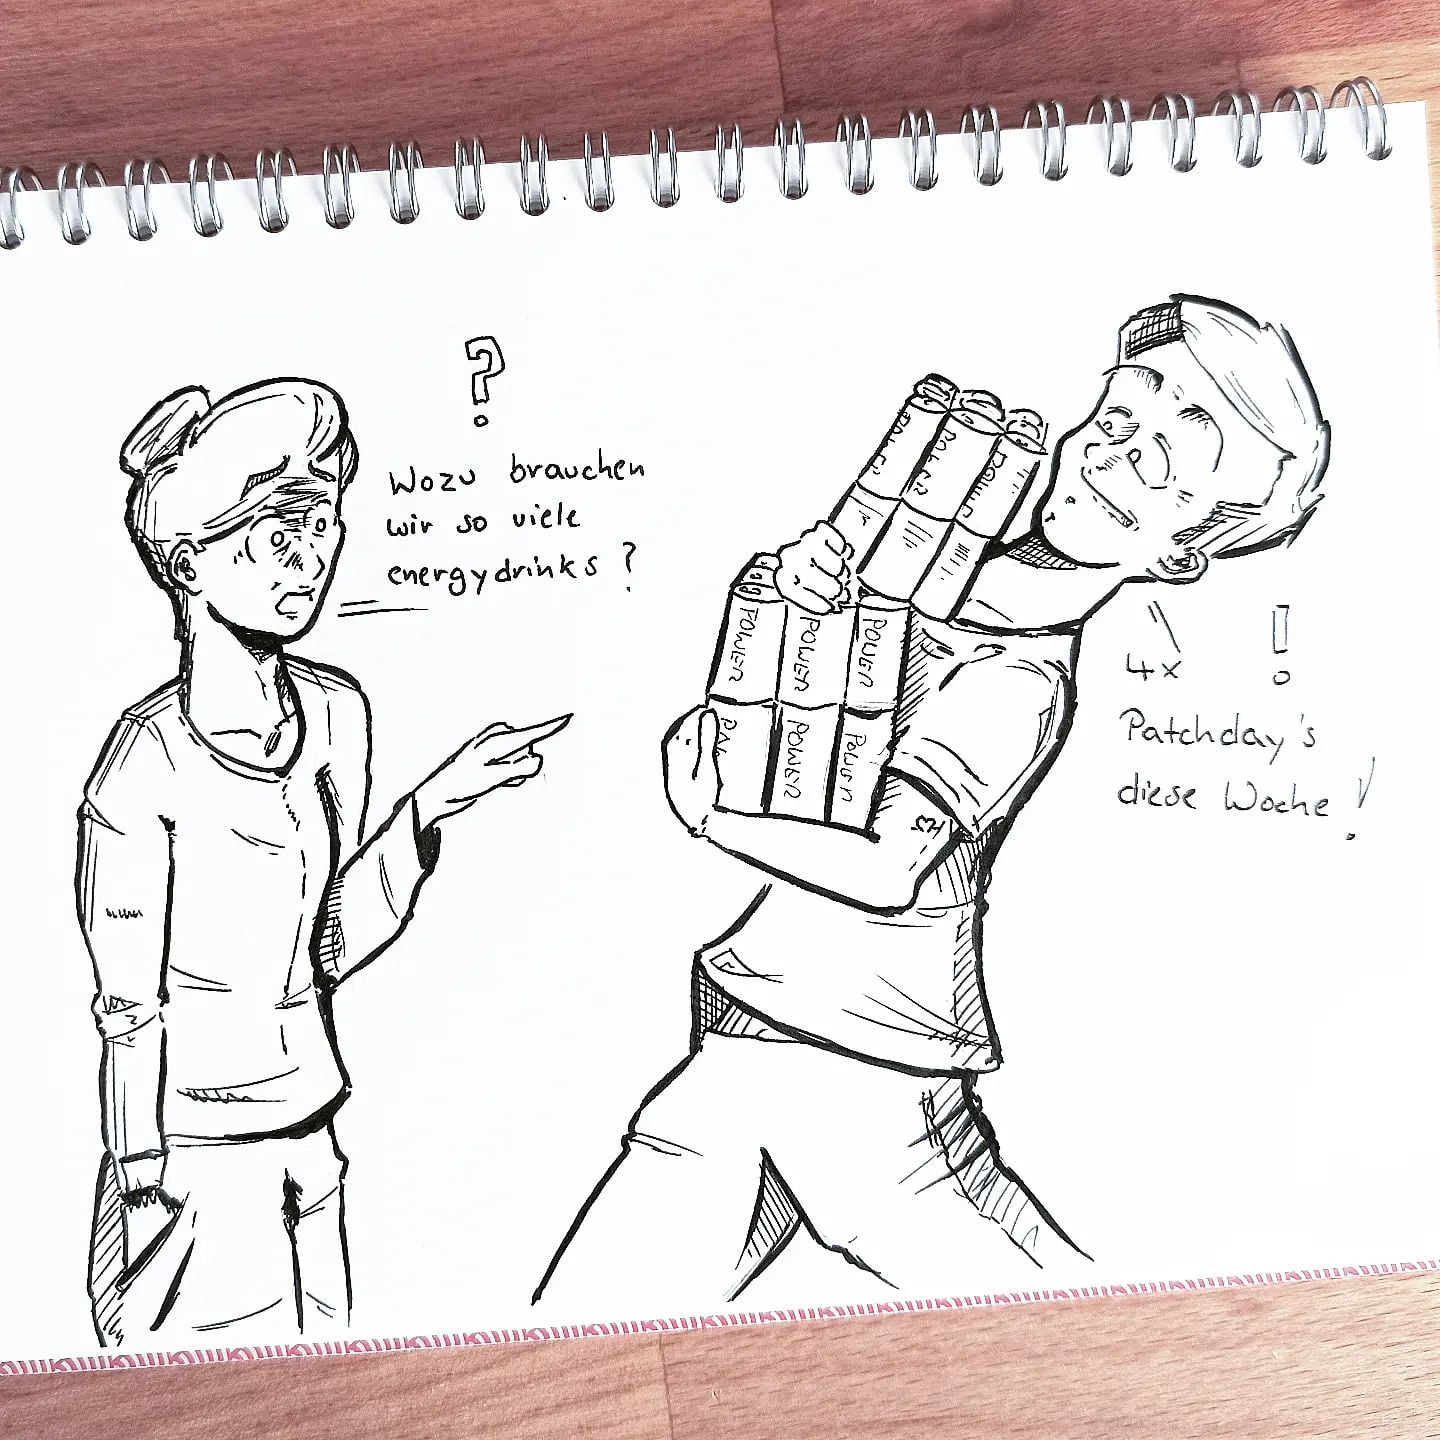 ?
Wozu brauchen
wir so viele
energydrinks ?
POWER
POWER
POWER
POWER
POWER
!
4x
Patchday's
diese Woche !